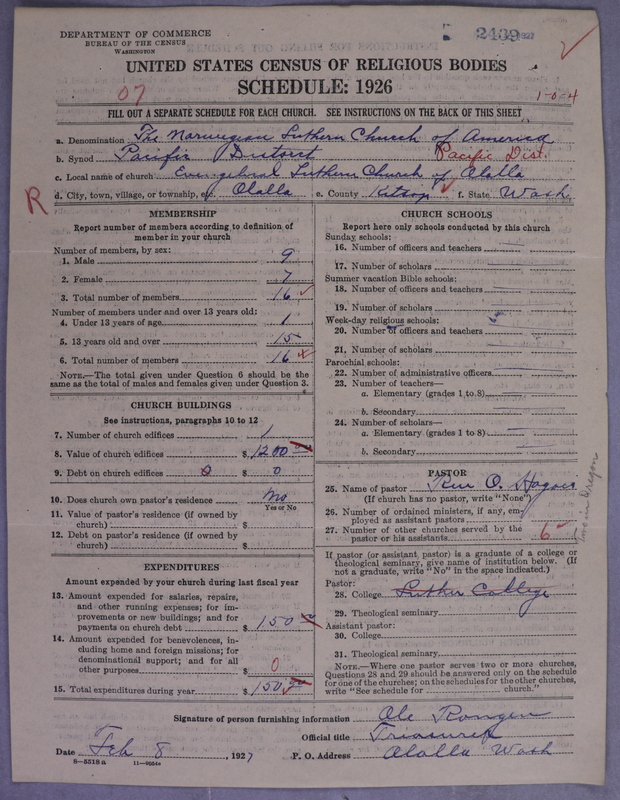 DEPARTMENT OF COMMERCE
BUREAU OF THE CENSUS
WASHINGTON
2439
UNITED STATES CENSUS OF RELIGIOUS BODIES
SCHEDULE: 1926
07
1-0-4
FILL OUT A SEPARATE SCHEDULE FOR EACH CHURCH. SEE INSTRUCTIONS ON THE BACK OF THIS SHEET
a. Denomination The Norwegian Luthern Church of America
b. Synod Pacific District Pacific Dist.
c. Local name of church Evangelical Luthern Church of Olalla
d. City, town, village, or township, etc. Olalla e. County Kitsap f. State Wash.
R
MEMBERSHIP
Report number of members according to definition of member in your church
Number of members, by sex:
1. Male 9
2. Female 7
3. Total number of members 16
Number of members under and over 13 years old:
4. Under 13 years of age 1
5. 13 years old and over 15
6. Total number of members 16
NOTE.—The total given under Question 6 should be the same as the total of males and females given under Question 3.
CHURCH BUILDINGS
See instructions, paragraphs 10 to 12
7. Number of church edifices 1
8. Value of church edifices $ 1200
9. Debt on church edifices 0 $ 0
10. Does church own pastor's residence No
Yes or No
11. Value of pastor's residence (if owned by church) $
12. Debt on pastor's residence (if owned by church) $
EXPENDITURES
Amount expended by your church during last fiscal year
13. Amount expended for salaries, repairs, and other running expenses; for improvements or new buildings; and for payments on church debt $ 150
14. Amount expended for benevolences, including home and foreign missions; for denominational support; and for all other purposes $ 0
15. Total expenditures during year $ 150
CHURCH SCHOOLS
Report here only schools conducted by this church
Sunday schools:
16. Number of officers and teachers
17. Number of scholars
Summer vacation Bible schools:
18. Number of officers and teachers
19. Number of scholars
Week-day religious schools:
20. Number of officers and teachers
21. Number of scholars
Parochial schools:
22. Number of administrative officers
23. Number of teachers—
a. Elementary (grades 1 to 8)
b. Secondary
24. Number of scholars—
a. Elementary (grades 1 to 8)
b. Secondary
PASTOR
25. Name of pastor O.
(If church has no pastor, write "None")
26. Number of ordained ministers, if any, employed as assistant pastors
27. Number of other churches served by the pastor or his assistants 6
in Oregon
If pastor (or assistant pastor) is a graduate of a college or theological seminary, give name of institution below. (If not a graduate, write "No" in the space indicated.)
Pastor:
28. College Luther College
29. Theological seminary
Assistant pastor:
30. College
31. Theological seminary
NOTE.—Where one pastor serves two or more churches, Questions 28 and 29 should be answered only on the schedule for one of the churches; on the schedules for the other churches, write "See schedule for church."
Signature of person furnishing information Ole Rongen
Official title Treasurer
Date Feb 8, 1927 P. O. Address Olalla Wash
8—5518 a 11—9034a